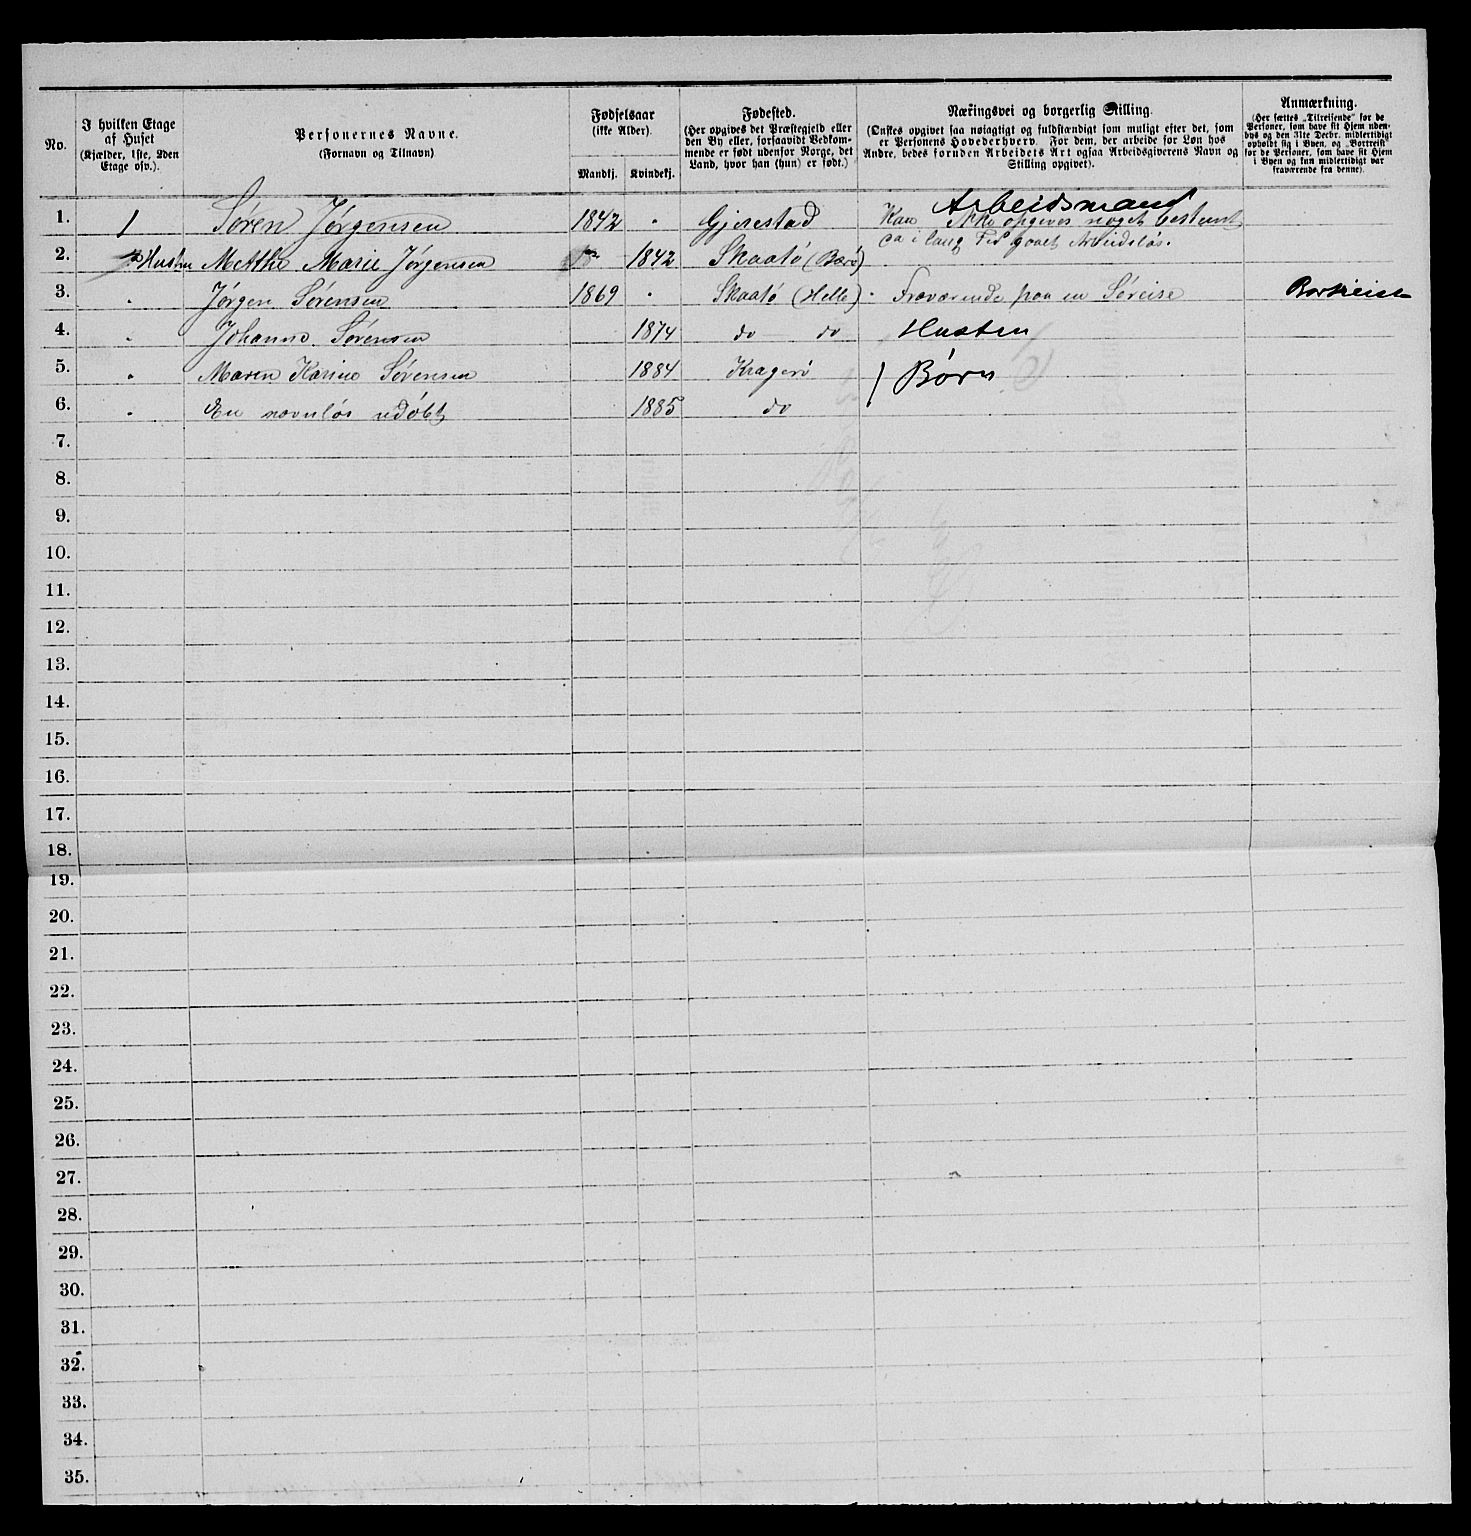 No.
I hvilken Etage
af Huset
(Kjælder, 1ste, 2den
Etage osv.).
Personernes Navne.
(Fornavn og Tilnavn)
Fødselsaar
(ikke Alder).
Mandkj. Kvindekj.
Fødested.
(Her opgives det Præstegjeld eller
den By eller, forsaavidt Vedkom-
mende er født udenfor Norge, det
Land, hvor han (hun) er født.)
Næringsvei og borgerlig Stilling.
(Ønskes opgivet saa nøiagtigt og fuldstændigt som muligt efter det, som
er Personens Hovederhverv. For dem, der arbeide for Løn hos
Andre, bedes foruden Arbeidets Art ogsaa Arbeidsgiverens Navn og
Stilling opgivet).
Anmærkning.
(Her sættes "Tilreisende" for de
Personer, som have sit Hjem uden-
bys og den 31te Decbr. midlertidigt
opholdt sig i Byen, og "Bortreist"
for de Personer, som have sit Hjem
i Byen og kun midlertidigt var
fraværende fra denne).
Arbeidsmand
1. 1 Søren Jørgensen 1842 " Gjerestad Kan ikke opgives noget bestemt
da i lang Tid gaaet Arbeidsløs.
2. Hustru Metthe Marie Jørgensen 1842 Skaatö (Barö)
3. " Jørgen Sørensen 1869 " Skaatö (Helle) Fraværende paa en Søreise Bortreist
4. " Johanne Sørensen 1874 do do Husten
5. " Maren Karine Sørensen 1884 Kragerö Børn
6. " En navnløs udøbt 1885 do
7.
8.
9.
10.
11.
12.
13.
14.
15.
16.
17.
18.
19.
20.
21.
22.
23.
24.
25.
26.
27.
28.
29.
30.
31.
32.
33.
34.
35.